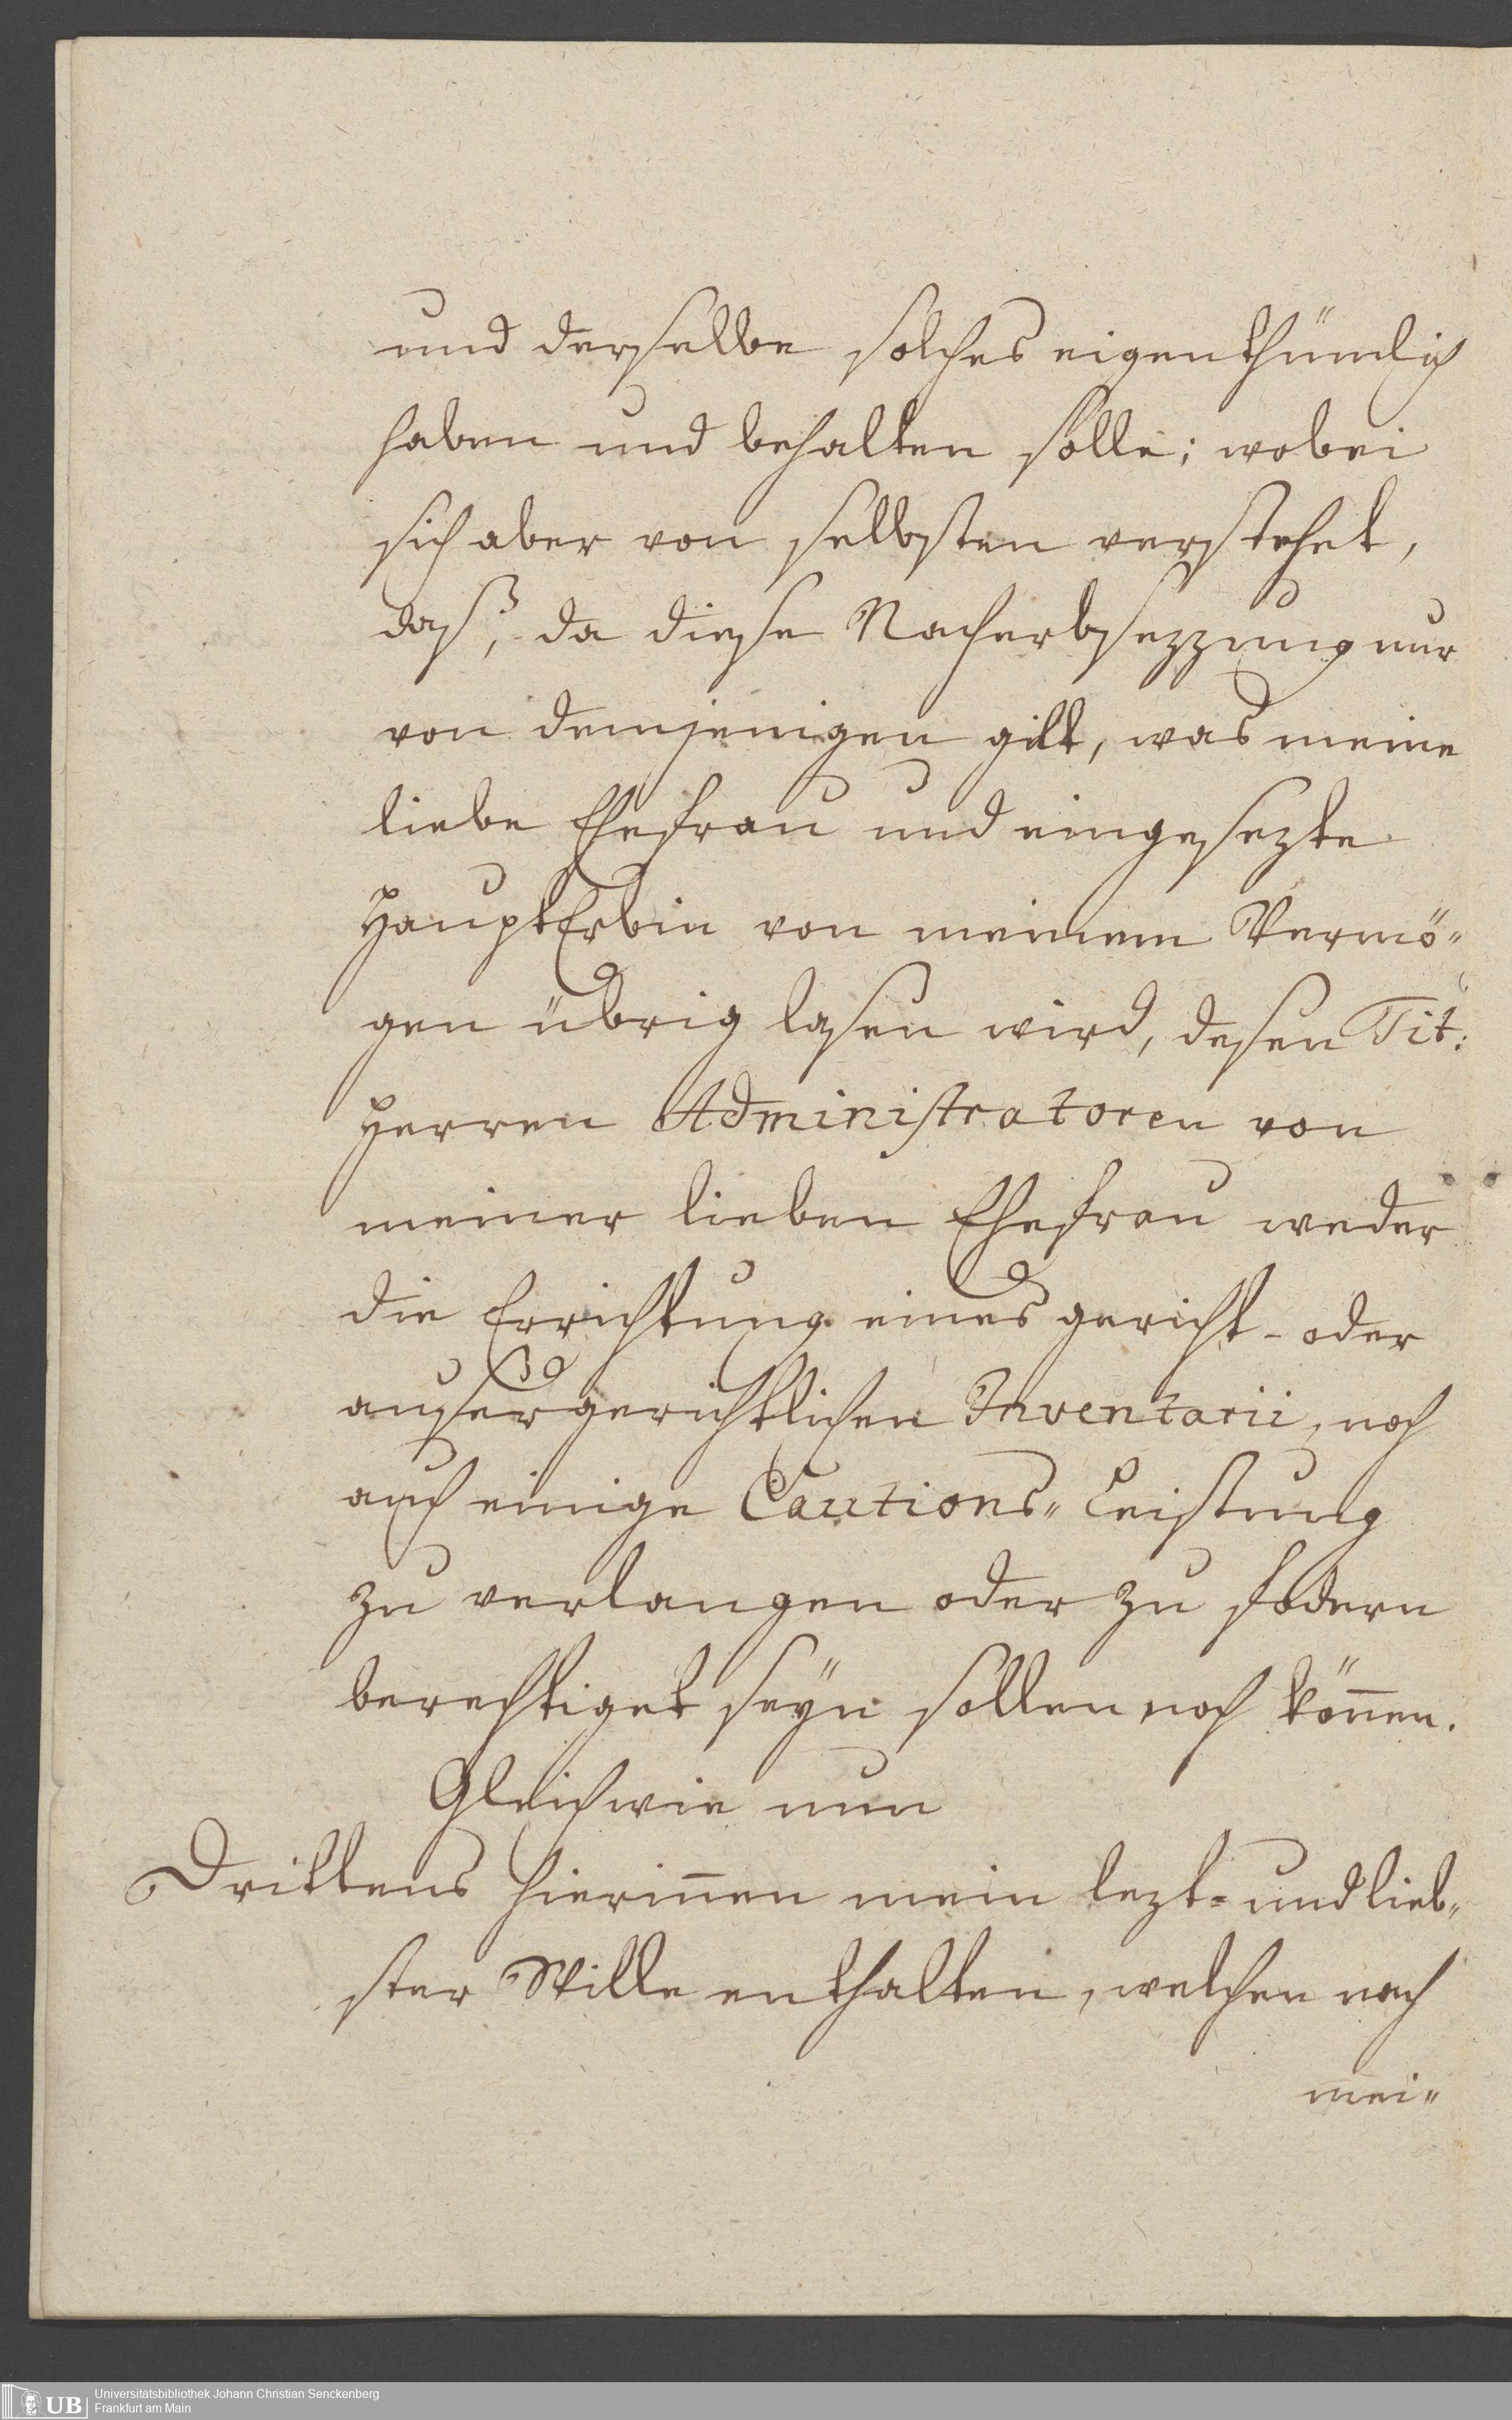 und derselbe solches eigenthümlich
haben und behalten solle; wobei
sich aber von selbsten verstehet,
daß, da diese Nacherbsezzung nur
von demjenigen gilt, was meine
liebe Ehefrau und eingesezte
HauptErbin von meinem Vermö„
gen übrig lasen wird, desen Tit:
Herren Administratoren von
meiner lieben Ehefrau weder
die Errichtung eines gericht- oder
außergerichtlichen Inventarii, noch
auch einige Cautions„Leistung
zu verlangen oder zu fodern
berechtiget seyn sollen noch könen.
Gleichwie nun
Drittens hierinen mein lezt- und lieb„
ster Wille enthalten, welchen nach
mei„
UB
Universitätsbibliothek Johann Christian Senckenberg
Frankfurt am Main